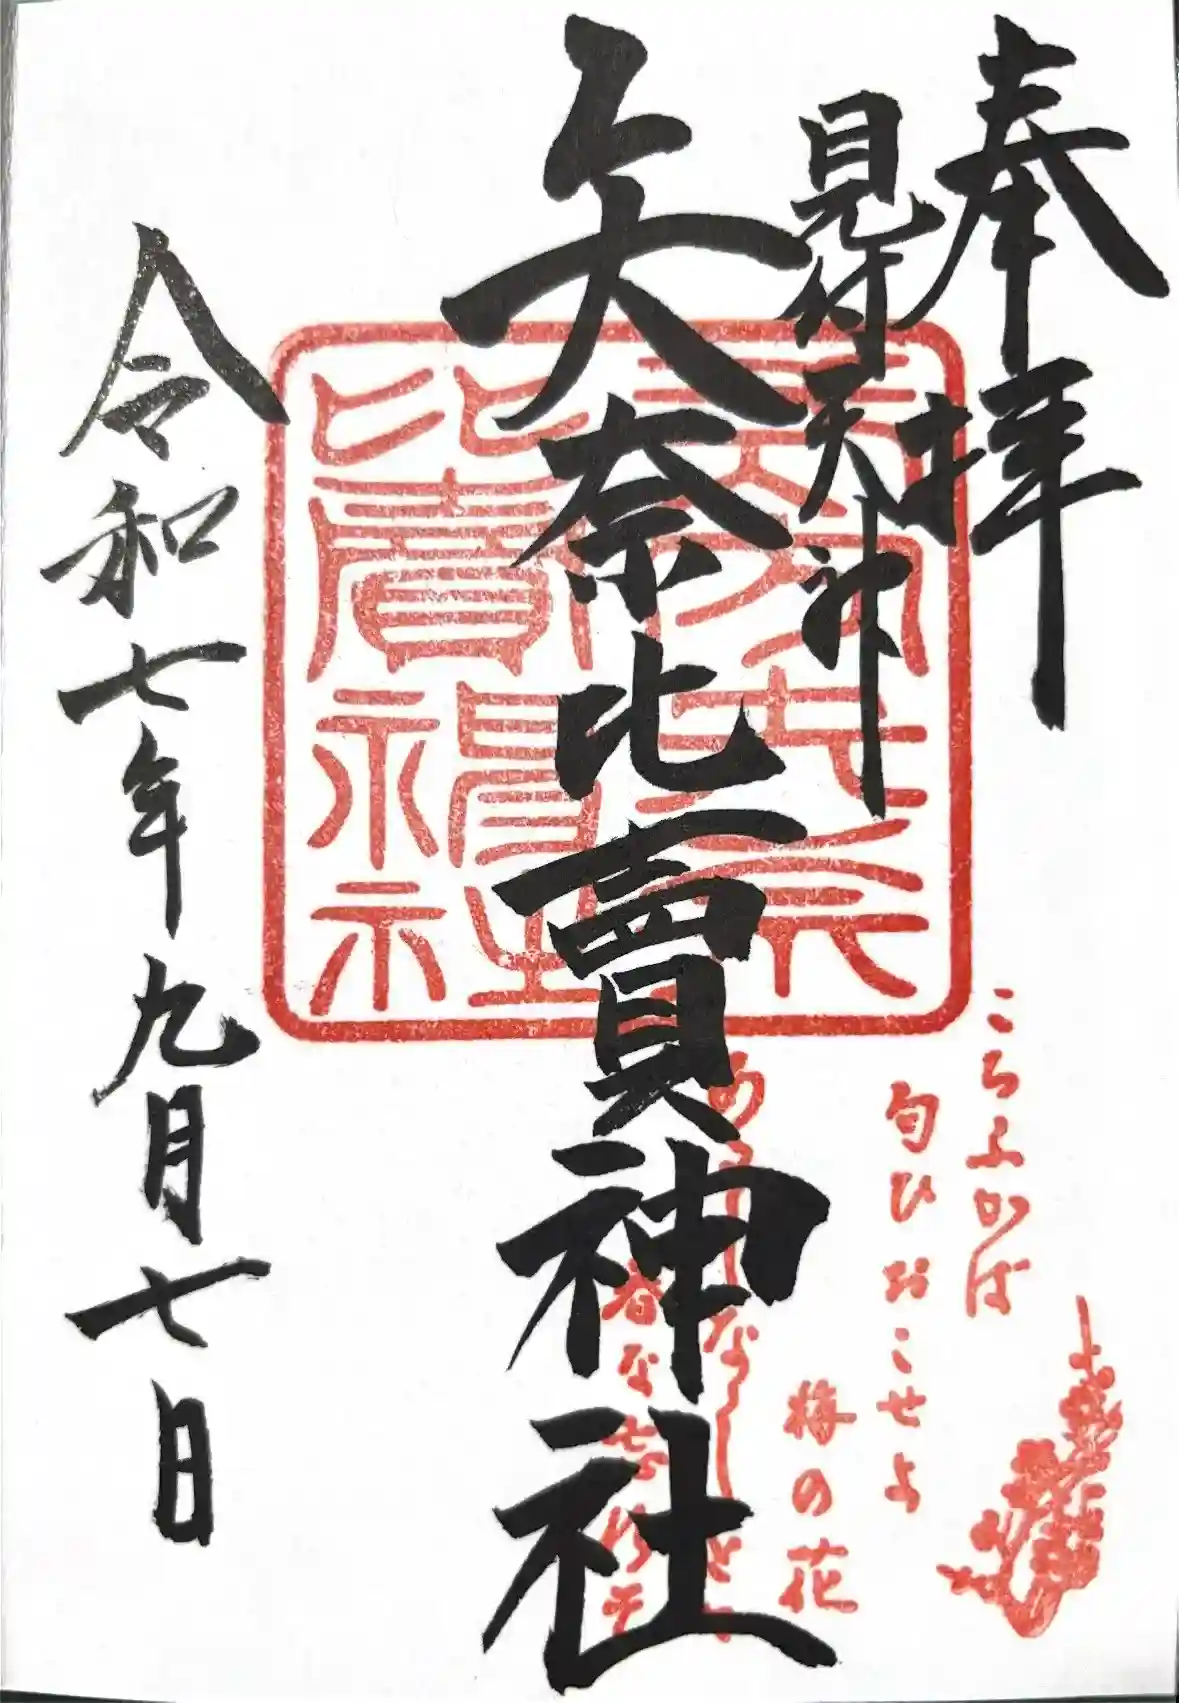 奉拝
見付天神
矢奈比賣神社
令和七年九月七日
こちふかば
匂ひおこせよ
梅の花
あるじなしとて
春な忘れそ